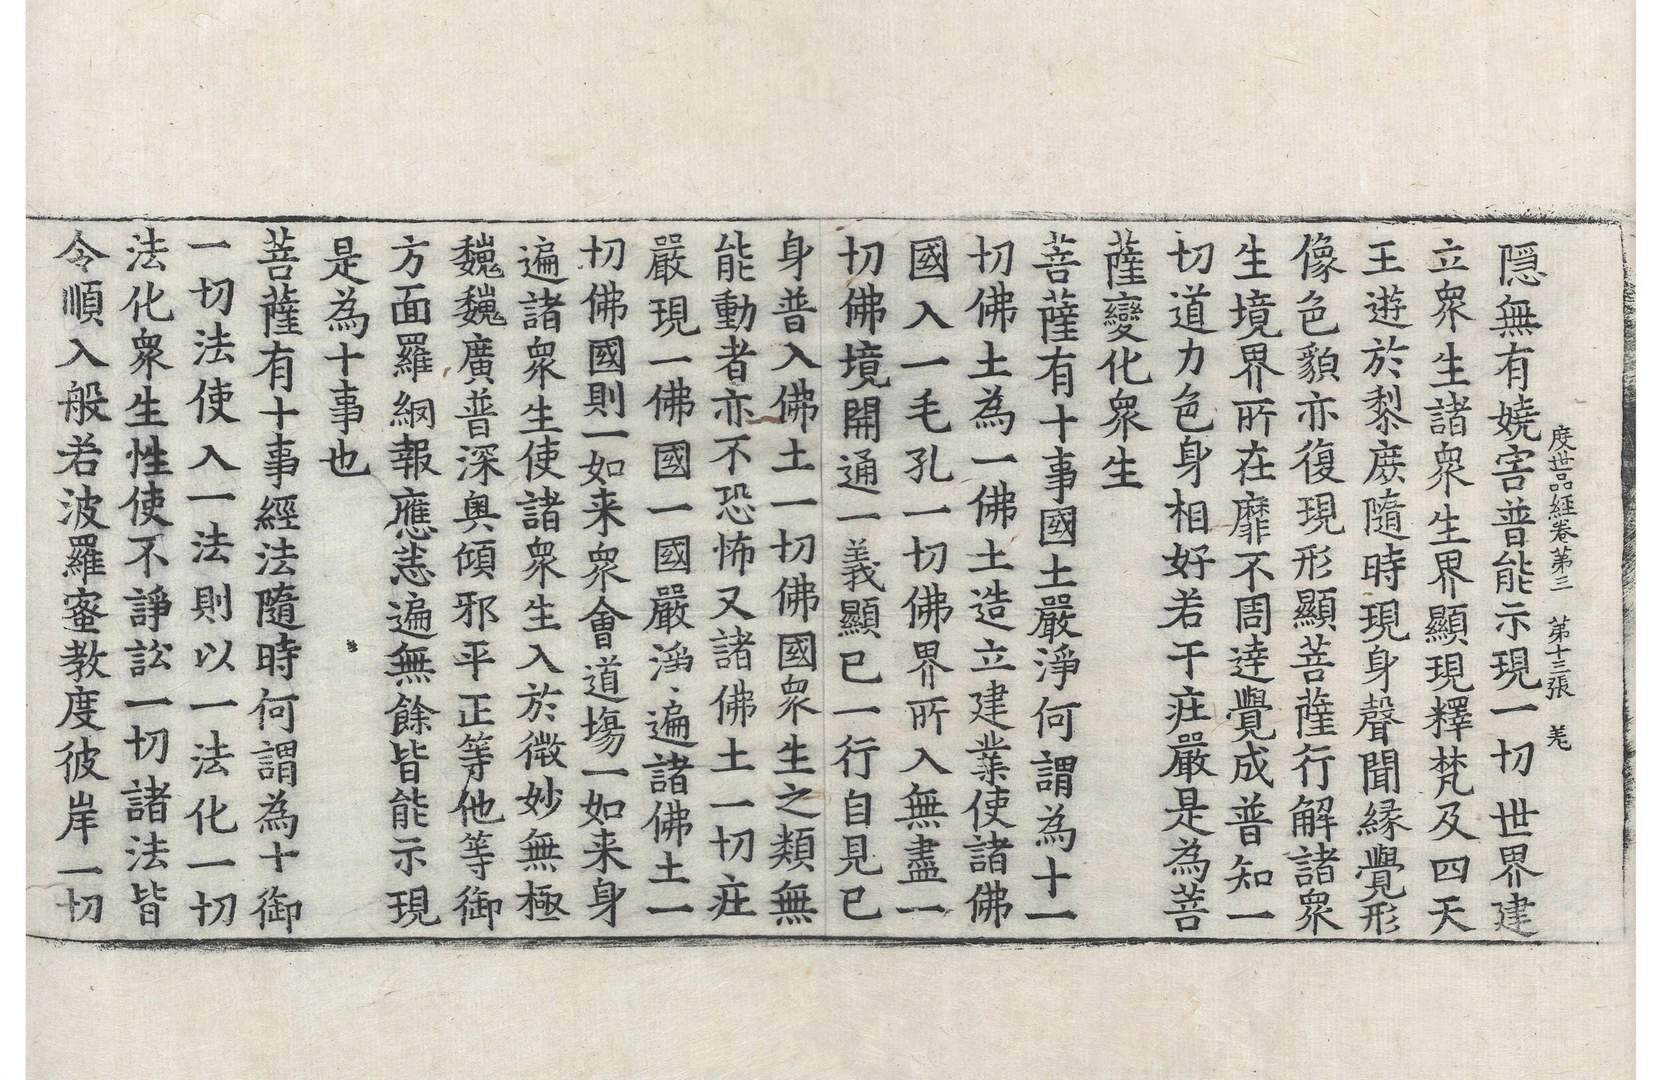 度世品経卷第三 第十三張 羌
隱無有嬈害普能示現一切世界建
立衆生諸衆生界顯現釋梵及四天
王遊於黎庶隨時現身聲聞縁覺形
像色貌亦復現形顯菩薩行解諸衆
生境界所在靡不周達覺成普知一
切道力色身相好若干疰嚴是為菩
薩變化衆生
菩薩有十事國土嚴淨何謂為十一
切佛土為一佛土造立建業使諸佛
國入一毛孔一切佛界所入無盡一
切佛境開通一義顯已一行自見已
身普入佛土一切佛國衆生之類無
能動者亦不恐怖又諸佛土一切疰
嚴現一佛國一國嚴淨遍諸佛土一
切佛國則一如来衆會道場一如来身
遍諸衆生使諸衆生入於微妙無極
巍巍廣普深奥傾邪平正等他等御
方面羅網報應恙遍無餘皆能示現
是為十事也
菩薩有十事經法隨時何謂為十御
一切法使入一法則以一法化一切
法化衆生性使不諍訟一切諸法皆
令順入般若波羅蜜教度彼岸一切